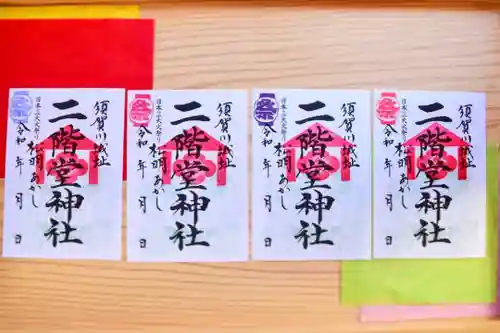 須賀川城址
二階堂神社
日本三大火祭り
松明あかし
令和 年 月 日
須賀川城址
二階堂神社
日本三大火祭り
松明あかし
令和 年 月 日
須賀川城址
二階堂神社
日本三大火祭り
松明あかし
令和 年 月 日
須賀川城址
二階堂神社
日本三大火祭り
松明あかし
令和 年 月 日